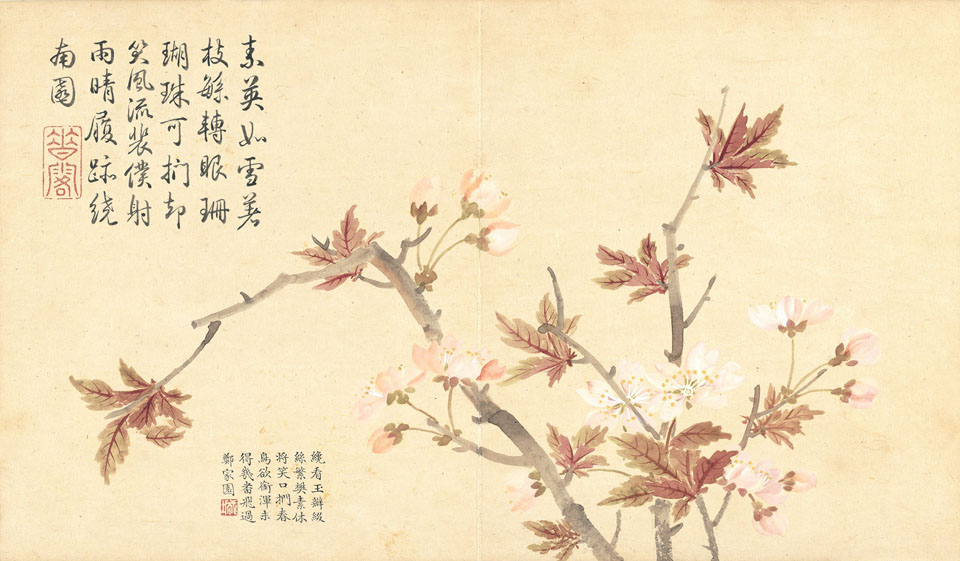 素英如雪著
枝緐轉眼珊
瑚珠可捫却
笑風流裴僕射
雨晴履跡繞
南園
纔看玉瓣綴
絲繁樊素休
將笑口捫春
鳥欲銜渾未
得幾番飛過
鄭家園